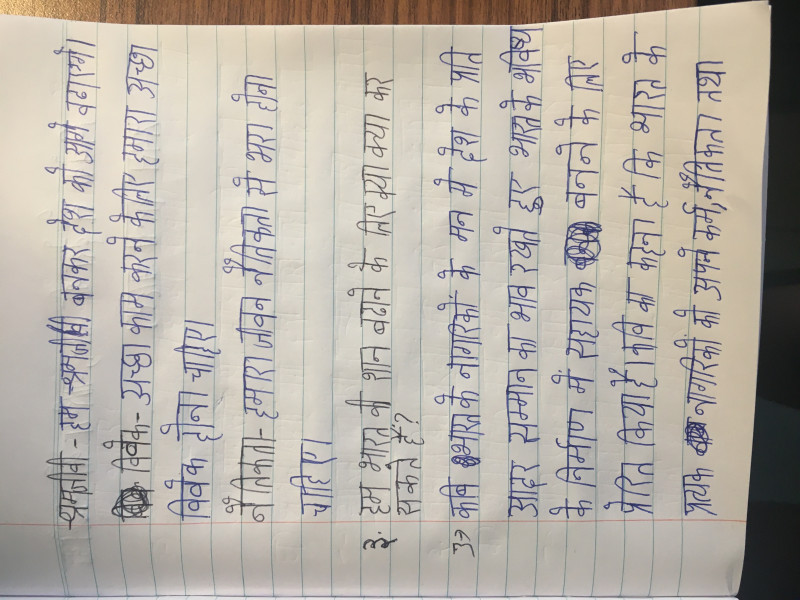 श्रमजीवि - हम श्रमजीवी बनकर देश को आगे बढाएंगे।
विवेक - अच्छा काम करने के लिए हमारा अच्छा
विवेक होना चाहिए।
नैतिकता - हमारा जीवन नैतिकता से भरा होना
चाहिए।
३. हम भारत की शान बढाने के लिए क्या क्या कर
सकते हैं?
उ→ कवि भारत के नागरिकों के मन में देश के प्रति
आदर सम्मान का भाव रखते हुए भारत के भविष्य
के निर्माण में सहायक बनने के लिए
प्रेरित किया हैं। कवि का कहना हैं कि भारत के
प्रत्यक नागरिकों को अपने कर्म, नैतिकता तथा